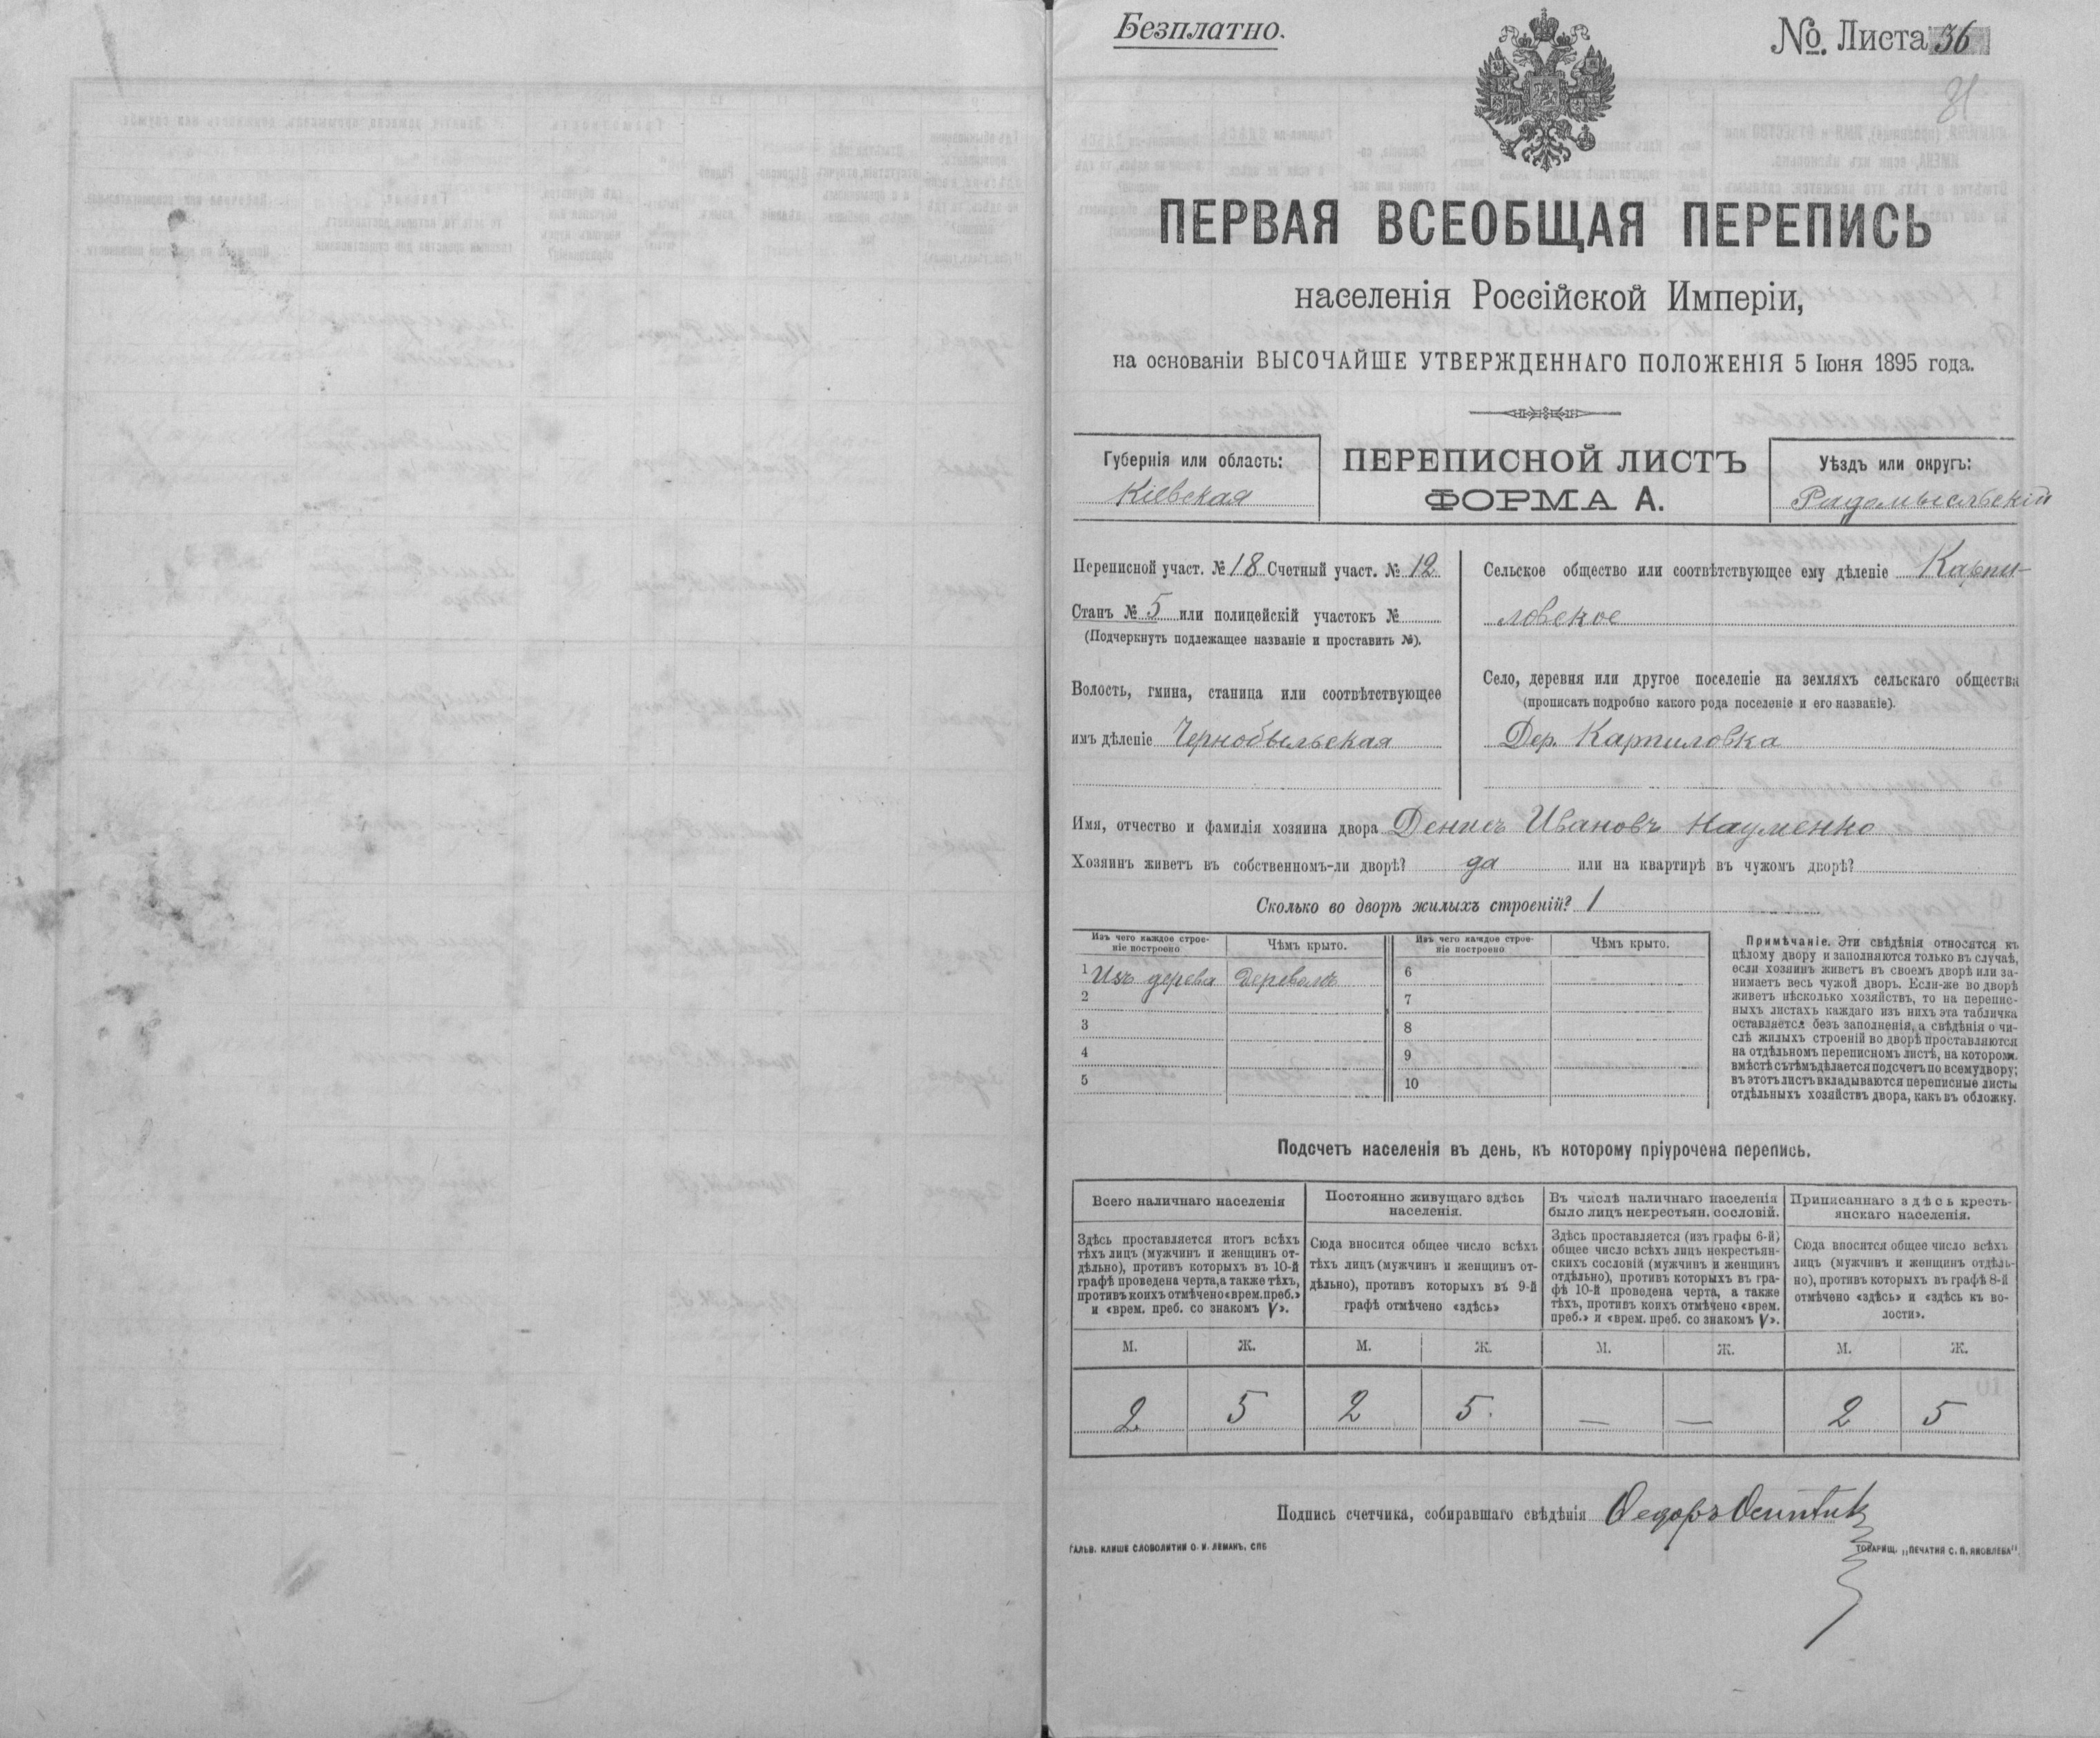 Безплатно.
№. Листа 36
81
ПЕРВАЯ ВСЕОБЩАЯ ПЕРЕПИСЬ
населенія Россійской Имперіи,
на основаніи ВЫСОЧАЙШЕ УТВЕРЖДЕННАГО ПОЛОЖЕНІЯ 5 Іюня 1895 года.
Губернія или область:
Кіевская
ПЕРЕПИСНОЙ ЛИСТЪ
ФОРМА А.
Уѣздъ или округъ:
Радомысльскій
Переписной участ. № 18 Счетный участ. № 12
Станъ № 5 или полицейскій участокъ №
(Подчеркнуть подлежащее названіе и проставить №).
Волость, гмина, станица или соотвѣтствующее
имъ дѣленіе Чернобыльская
Сельское общество или соотвѣтствующее ему дѣленіе Карпи-
ловское
Село, деревня или другое поселеніе на земляхъ сельскаго общества
(прописать подробно какого рода поселеніе и его названіе).
Дер. Карпиловка
Имя, отчество и фамилія хозяина двора Денисъ Ивановъ Науменко
Хозяинъ живетъ въ собственномъ-ли дворѣ? да или на квартирѣ въ чужомъ дворѣ?
Сколько во дворѣ жилыхъ строеній? 1
Изъ чего каждое строе-
ніе построено
Чѣмъ крыто.
Изъ чего каждое строе-
ніе построено
Чѣмъ крыто.
1 Изъ дерева деревомъ 6
2 7
3 8
4 9
5 10
Примѣчаніе. Эти свѣдѣнія относятся къ
цѣлому двору и заполняются только въ случаѣ,
если хозяинъ живетъ въ своемъ дворѣ или за-
нимаетъ весь чужой дворъ. Если-же во дворѣ
живетъ нѣсколько хозяйствъ, то на перепис-
ныхъ листахъ каждаго изъ нихъ эта табличка
оставляется безъ заполненія, а свѣдѣнія о чи-
слѣ жилыхъ строеній во дворѣ проставляются
на отдѣльномъ переписномъ листѣ, на котором.
вмѣстѣ съ тѣмъ дѣлается подсчетъ по всему двору;
въ этотъ листъ вкладываются переписные листы
отдѣльныхъ хозяйствъ двора, какъ въ обложку.
Подсчетъ населенія въ день, къ которому пріурочена перепись.
Всего наличнаго населенія
Здѣсь проставляется итогъ всѣхъ
тѣхъ лицъ (мужчинъ и женщинъ от-
дѣльно), противъ которыхъ въ 10-й
графѣ проведена черта, а также тѣхъ,
противъ коихъ отмѣчено «врем. преб.»
и «врем. преб. со знакомъ V».
Постоянно живущаго здѣсь
населенія.
Сюда вносится общее число всѣхъ
тѣхъ лицъ (мужчинъ и женщинъ от-
дѣльно), противъ которыхъ въ 9-й
графѣ отмѣчено «здѣсь»
Въ числѣ наличнаго населенія
было лицъ некрестьян. сословій.
Здѣсь проставляется (изъ графы 6-й)
общее число всѣхъ лицъ некрестьян-
скихъ сословій (мужчинъ и женщинъ
отдѣльно), противъ которыхъ въ гра-
фѣ 10-й проведена черта, а также
тѣхъ, противъ коихъ отмѣчено «врем.
преб.» и «врем. преб. со знакомъ V».
Приписаннаго здѣсь кресть-
янскаго населенія.
Сюда вносится общее число всѣхъ
лицъ (мужчинъ и женщинъ отдѣль-
но), противъ которыхъ въ графѣ 8-й
отмѣчено «здѣсь» и «здѣсь къ во-
лости».
М. Ж. М. Ж. М. Ж. М. Ж.
2 5 2 5. — — 2 5
Подпись счетчика, собиравшаго свѣдѣнія Федоръ
ГАЛЬВ. КЛИШЕ СЛОВОЛИТНИ О. И. ЛЕМАНЪ, СПБ
ТОВАРИЩ. „ПЕЧАТНЯ С. П. ЯКОВЛЕВА".